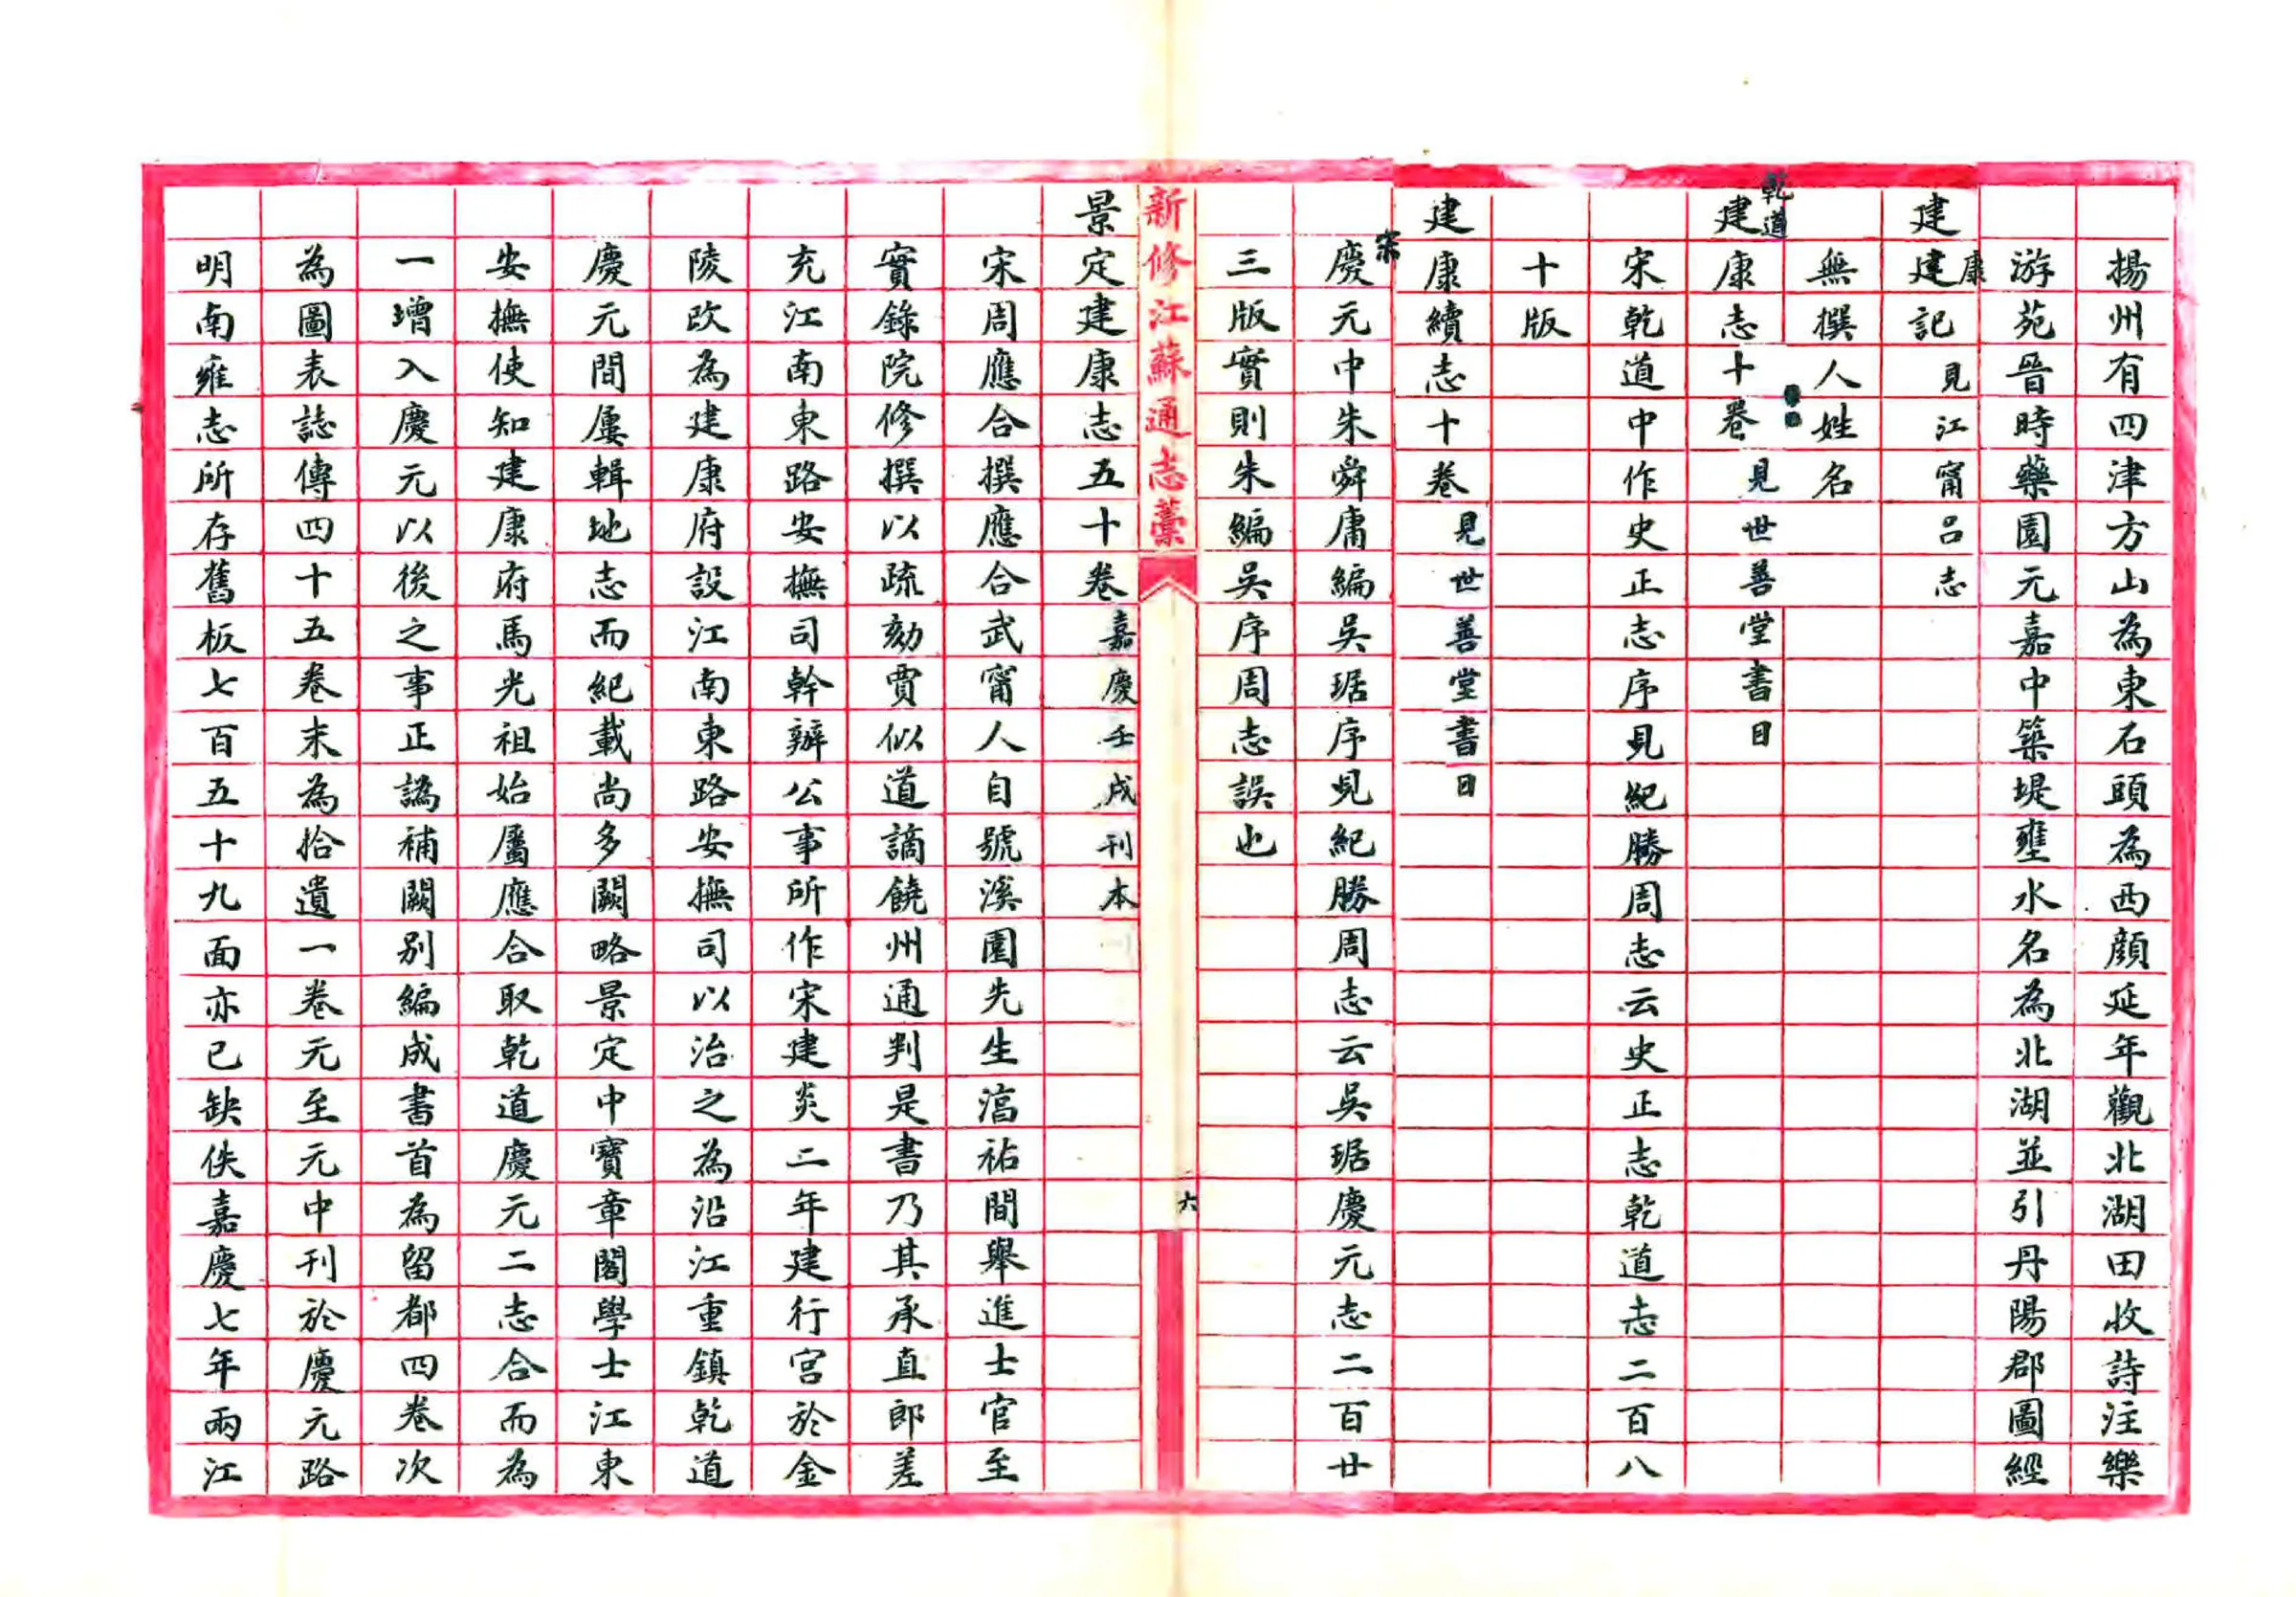 揚州有四津方山為東石頭為西顏延年觀北湖田收詩注樂
游苑晉時藥園元嘉中築堤壅水名為北湖並引丹陽郡圖經
建康建記見江甯呂志
無撰人姓名
乾道建康志十卷見世善堂書目
宋乾道中作史正志序見紀勝周志云史正志乾道志二百八
十版
建康續志十卷見世善堂書目
宋慶元中朱舜庸編吳琚序見紀勝周志云吳琚慶元志二百廿
三版實則朱編吳序周志誤也
新修江蘇通志藁
六
景定建康志五十卷嘉慶壬戌刊本
宋周應合撰應合武甯人自號溪園先生湻祐間舉進士官至
實錄院修撰以疏劾賈似道謫饒州通判是書乃其承直郎差
充江南東路安撫司幹辦公事所作宋建炎二年建行宮於金
陵改為建康府設江南東路安撫司以治之為沿江重鎮乾道
慶元間屢輯地志而紀載尚多闕略景定中寶章閣學士江東
安撫使知建康府馬光祖始屬應合取乾道慶元二志合而為
一增入慶元以後之事正譌補闕別編成書首為留都四卷次
為圖表誌傳四十五卷末為拾遺一卷元至元中刊於慶元路
明南雍志所存舊板七百五十九面亦已缺佚嘉慶七年兩江